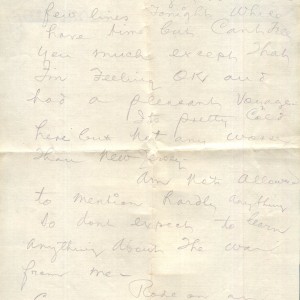 few lines Tonight While
have time but Can't
You much except That
I'm Feeling O.K. and
had a pleasant Voyage
Its pretty Cold
here but not any
than New Jersey
Am Not Allowed
to mention hardly anything
So dont expect to learn
anything about the war
from me -
Rode on an